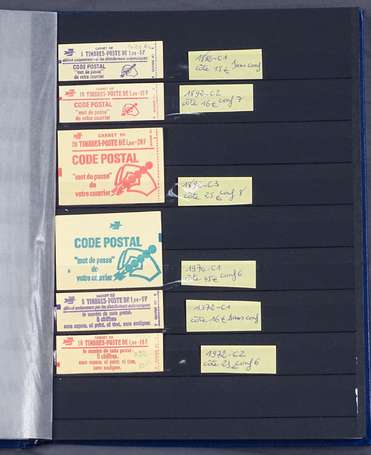 CARNET DE
5 TIMBRES-POSTE DE
CODE POSTAL
"mot de passe"
de votre courrier
1892-C1
côte 15€ sans conf
CARNET DE
10 TIMBRES-POSTE DE
CODE POSTAL
"mot de passe"
de votre courrier
1892-C2
côte 16€ conf 7
CARNET DE
20 TIMBRES-POSTE DE
CODE POSTAL
"mot de passe"
de
votre courrier
côte 25€ conf 8
CODE POSTAL
"mot de passe"
de
votre courrier
conf 6
CARNET DE
5 TIMBRES-POSTE DE
le numéro de code postal:
5 chiffres
sans espace, ni point, ni tiret, sans
souligner.
1972-C1
côte 16€ sans conf
CARNET DE
10 TIMBRES-POSTE DE
le numéro de code postal:
5 chiffres,
sans espace, ni point, ni tiret,
sans souligner.
1972-C2
côte 23€ conf 6